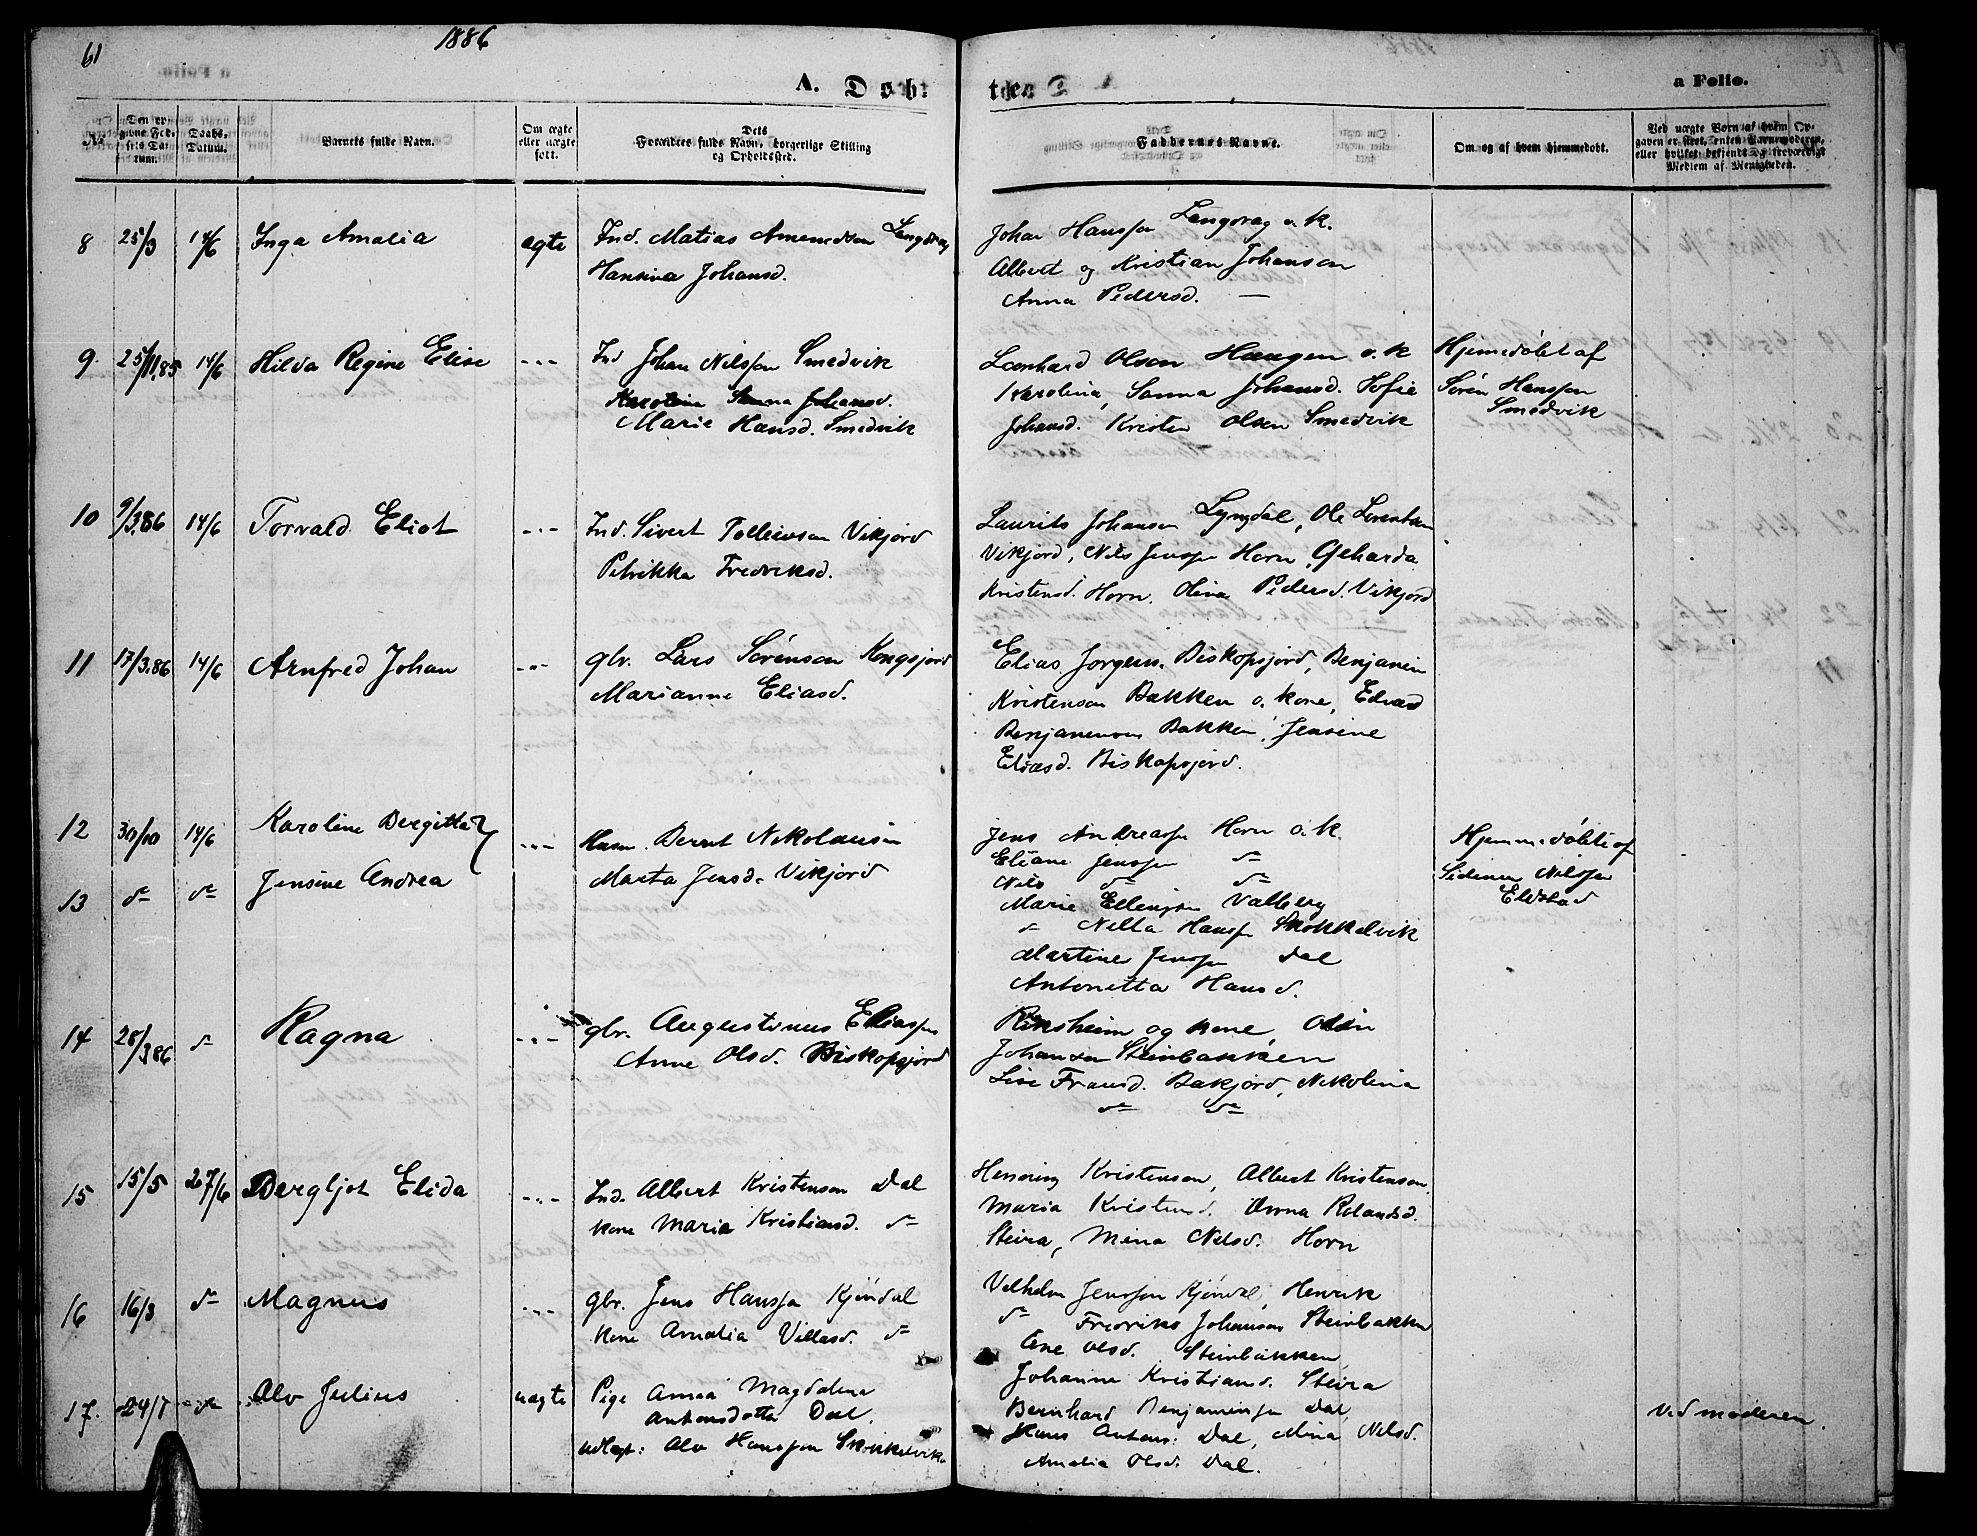 61
1886
A. Døb-
te.
a Folio.
No
Den opgivne Fødsels Datum.
Daabs-Datum.
Barnets fulde Navn.
Om ægte eller uægte født.
Forældres fulde Navn, borgerlige Stilling og Opholdssted.
Faddernes Navne.
Om og af hvem hjemmedøbt.
Ved uægte Børn af hvem Opgaven er skeet, enten Barnemoderen, eller hvilket bekjendt og troværdigt Medlem af Menigheden.
8 25/3 14/6 Inga Amalia ægte Ind. Matias Amundsen Langdrag
Hansina Johansd.
Johan Hanssen Langdrag o. k.
Albert og Kristian Johansen
Anna Pedersd. —
9 25/11.85 14/6 Hilda Regine Elise -"- Ind Johan Nilssen Smedvik
Karolina Sanna Johansd.
Marie Hansd. Smedvik
Leonhard Olsen Haugen o. k
Karolina, Sanna Johansd. Sofie
Johansd. Kristen Olsen Smedvik
Hjemmedøbt af
Søren Hanssen
Smedvik
10 9/3.86 14/6 Torvald Eliot -"- Ind. Sivert Tollevsen Vikjord
Petrikka Fredriksd.
Laurits Johansen Lyngdal, Ole Lorentsen
Vikjord, Nils Jenssen Horn, Geharda
Kristensd. Horn. Olina Pedersd. Vikjord
11 17/3.86 14/6 Arnfred Johan -"- gbr. Lars Sørensen Kongsjord
Marianne Eliasd.
Elias Jørgens. Biskopsjord, Benjamin
Kristensen Bakken o. kone, Edvard
Benjaminsen Bakken, Jensine
Eliasd. Biskopsjord.
12 30/10 14/6 Karoline Bergitta
13 do do Jensine Andrea
-"- Husm. Bernt Nikolaisen
Marta Jensd. Vikjord
Jens Andreassen Horn o. k.
Eliane Jenssen do
Nils do do
Marie Ellingsen Valberg
do Nella Hanssen Skokkelvik
Martine Jenssen Dal
Antonetta Hansd.
Hjemmedøbt af
Sidenius Nilssen
Eldstad
14 28/3 86 do Ragna -"- gbr. Augustinus Eliassen
Anne Olsd. Biskopsjord
Rinsheim og kone, Odin
Johansen Steinbakken
Lise Fransd. Bakjord, Nikolina
do do
15 15/5 27/6 Bergljot Elida -"- Ind. Albert Kristensen Dal
kone Maria Kristiansd. do
Henning Kristensen, Albert Kristensen
Maria Kristensd. Anna Rolandsd.
Steira, Mina Nilsd. Horn
16 16/3 do Magnus -"- gbr. Jens Hanssen Kjøndal
kone Amalia Villasd. do
Vilhelm Jenssen Kjøndal, Henrik
do Fredriks Johansen Steinbakken
Ane Olsd. Steinbakken
Johanne Kristiansd. Steira
17. 24/7 do Alv Julius uægte Pige Anna Magdalena
Antonsdotter Dal.
udlagt: Alv Hanssen Skokkelvik
Bernhard Benjaminsen Dal,
Hans Antons: Dal, Mina Nilsd.
Amalia Olsd. Dal.
Ved moderen.